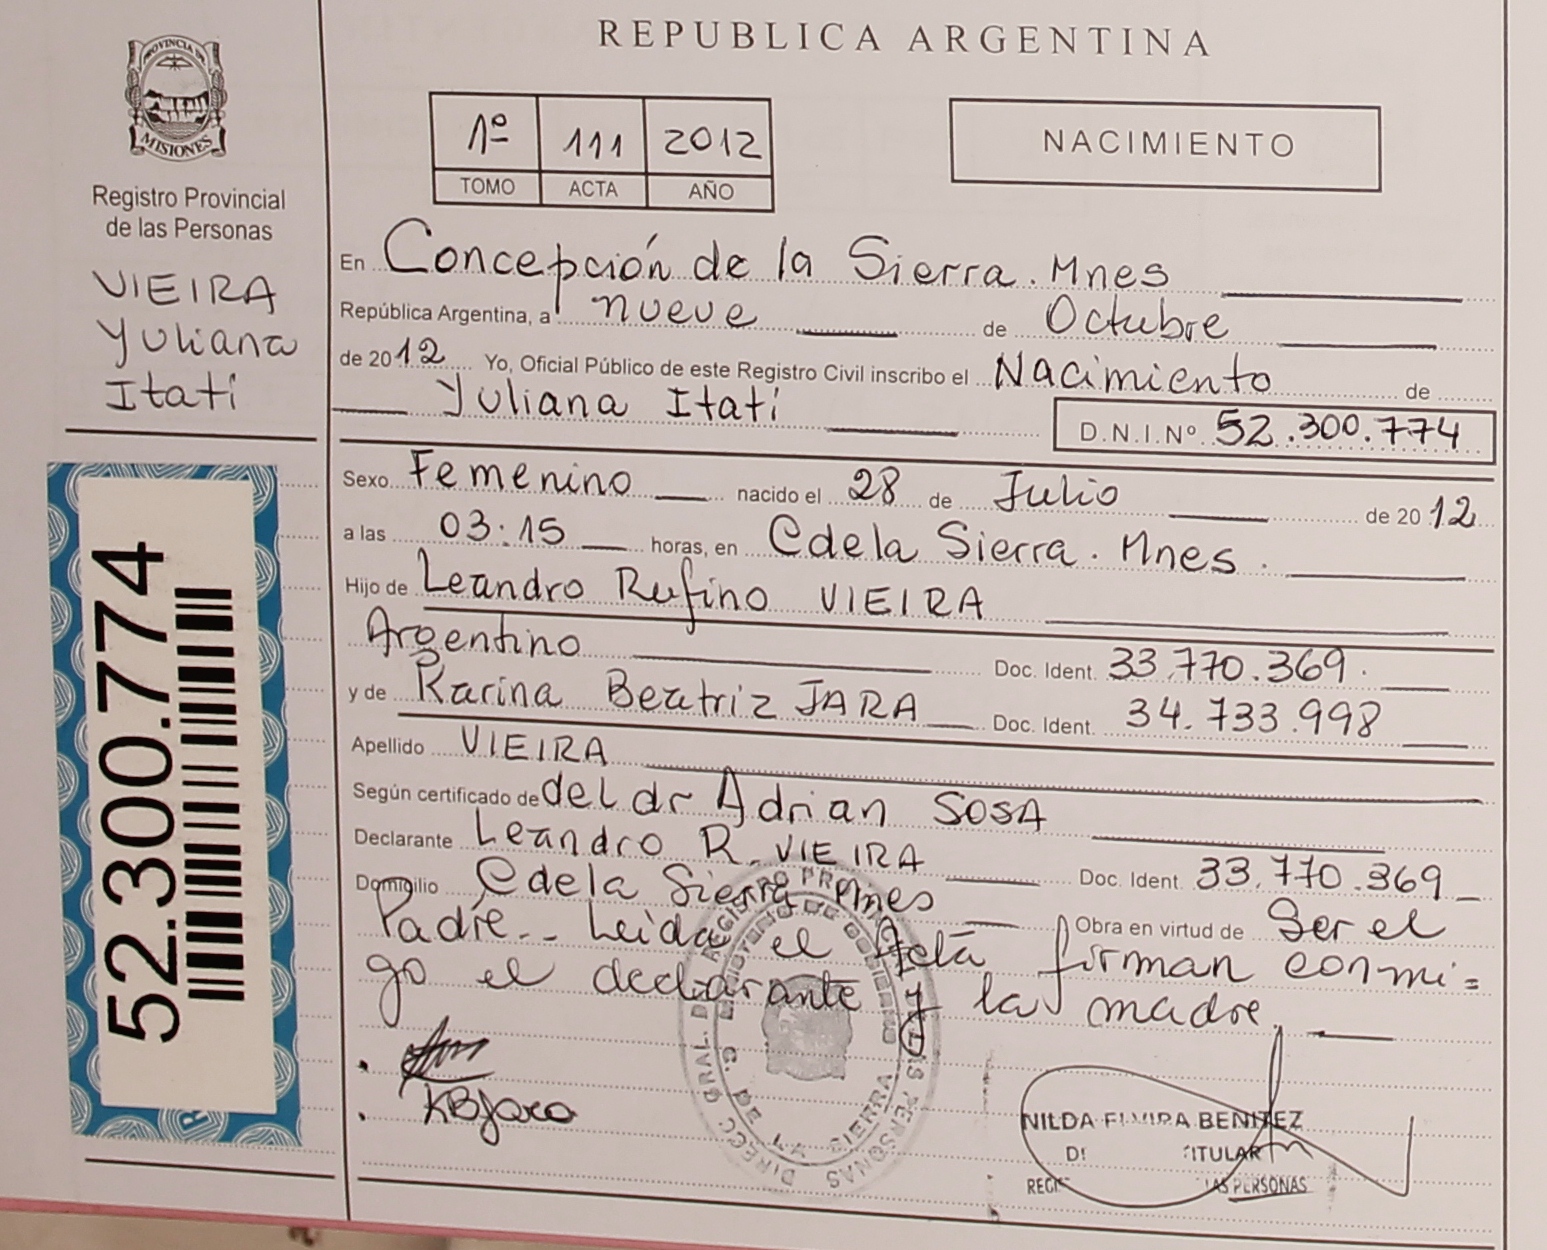 REPUBLICA ARGENTINA
PROVINCIA DE
MISIONES
Registro Provincial
de las Personas
VIEIRA
Yuliana
Itatí
52.300.774
1º 111 2012
TOMO ACTA AÑO
NACIMIENTO
En Concepción de la Sierra. Mnes
República Argentina, a nueve de Octubre
de 2012 Yo, Oficial Público de este Registro Civil inscribo el Nacimiento de
Yuliana Itatí D.N.I.Nº 52.300.774
Sexo Femenino nacido el 28 de Julio de 2012
a las 03:15 horas, en C de la Sierra. Mnes.
Hijo de Leandro Rufino VIEIRA
Argentino Doc. Ident. 33.770.369.
y de Karina Beatriz JARA Doc. Ident. 34.733.998
Apellido VIEIRA
Según certificado de del dr Adrian SOSA
Declarante Leandro R. VIEIRA Doc. Ident. 33.770.369
Domicilio C de la Sierra Mnes Obra en virtud de Ser el
Padre.. Leida el Acta, firman conmi=
go el declarante y la madre.
KBJara
NILDA ELVIRA BENITEZ
TITULAR
LAS PERSONAS